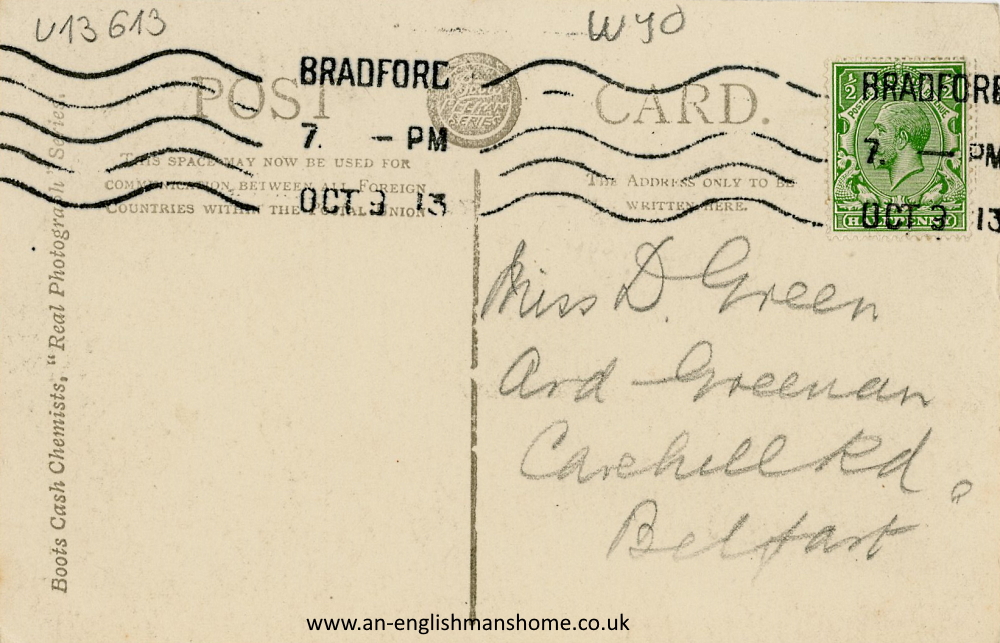 U13613
WYO
POST CARD.
BRADFORD
7. — PM
OCT 9 13
BRADFORD
7. — PM
OCT 9 13
½
HALFPENNY
THIS SPACE MAY NOW BE USED FOR
COMMUNICATION BETWEEN ALL FOREIGN
COUNTRIES WITHIN THE POSTAL UNION
THE ADDRESS ONLY TO BE
WRITTEN HERE.
Boots Cash Chemists, "Real Photograph" Series.
Miss D. Green
Ard Greenan
Cavehill Rd.
Belfast
www.an-englishmanshome.co.uk